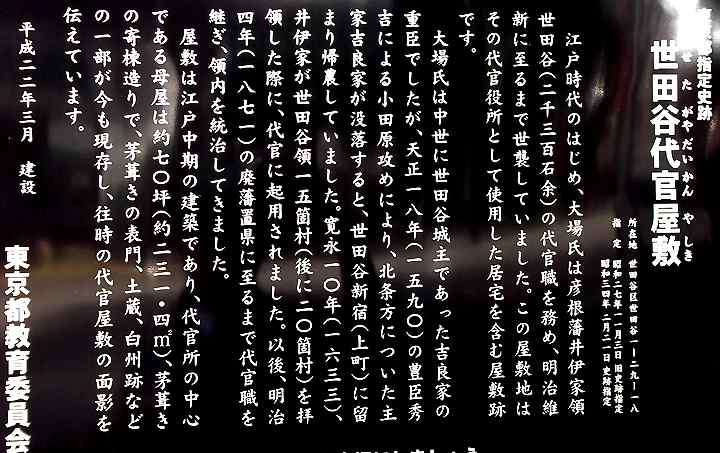 東京都指定史跡
世田谷代官屋敷
せたがやだいかんやしき
所在地 世田谷区世田谷一-二九-一八
指定 昭和二七年一一月三日 旧史跡指定
昭和三四年 二月二一日 史跡指定
江戸時代のはじめ、大場氏は彦根藩井伊家領
世田谷(二千三百石余)の代官職を務め、明治維
新に至るまで世襲していました。この屋敷地は
その代官役所として使用した居宅を含む屋敷跡
です。
大場氏は中世に世田谷城主であった吉良家の
重臣でしたが、天正一八年(一五九〇)の豊臣秀
吉による小田原攻めにより、北条方についた主
家吉良家が没落すると、世田谷新宿(上町)に留
まり帰農していました。寛永一〇年(一六三三)、
井伊家が世田谷領一五箇村(後に二〇箇村)を拝
領した際に、代官に起用されました。以後、明治
四年(一八七一)の廃藩置県に至るまで代官職を
継ぎ、領内を統治してきました。
屋敷は江戸中期の建築であり、代官所の中心
である母屋は約七〇坪(約二三一・四㎡)、茅葺き
の寄棟造りで、茅葺きの表門、土蔵、白州跡など
の一部が今も現存し、往時の代官屋敷の面影を
伝えています。
平成二二年三月 建設
東京都教育委員会